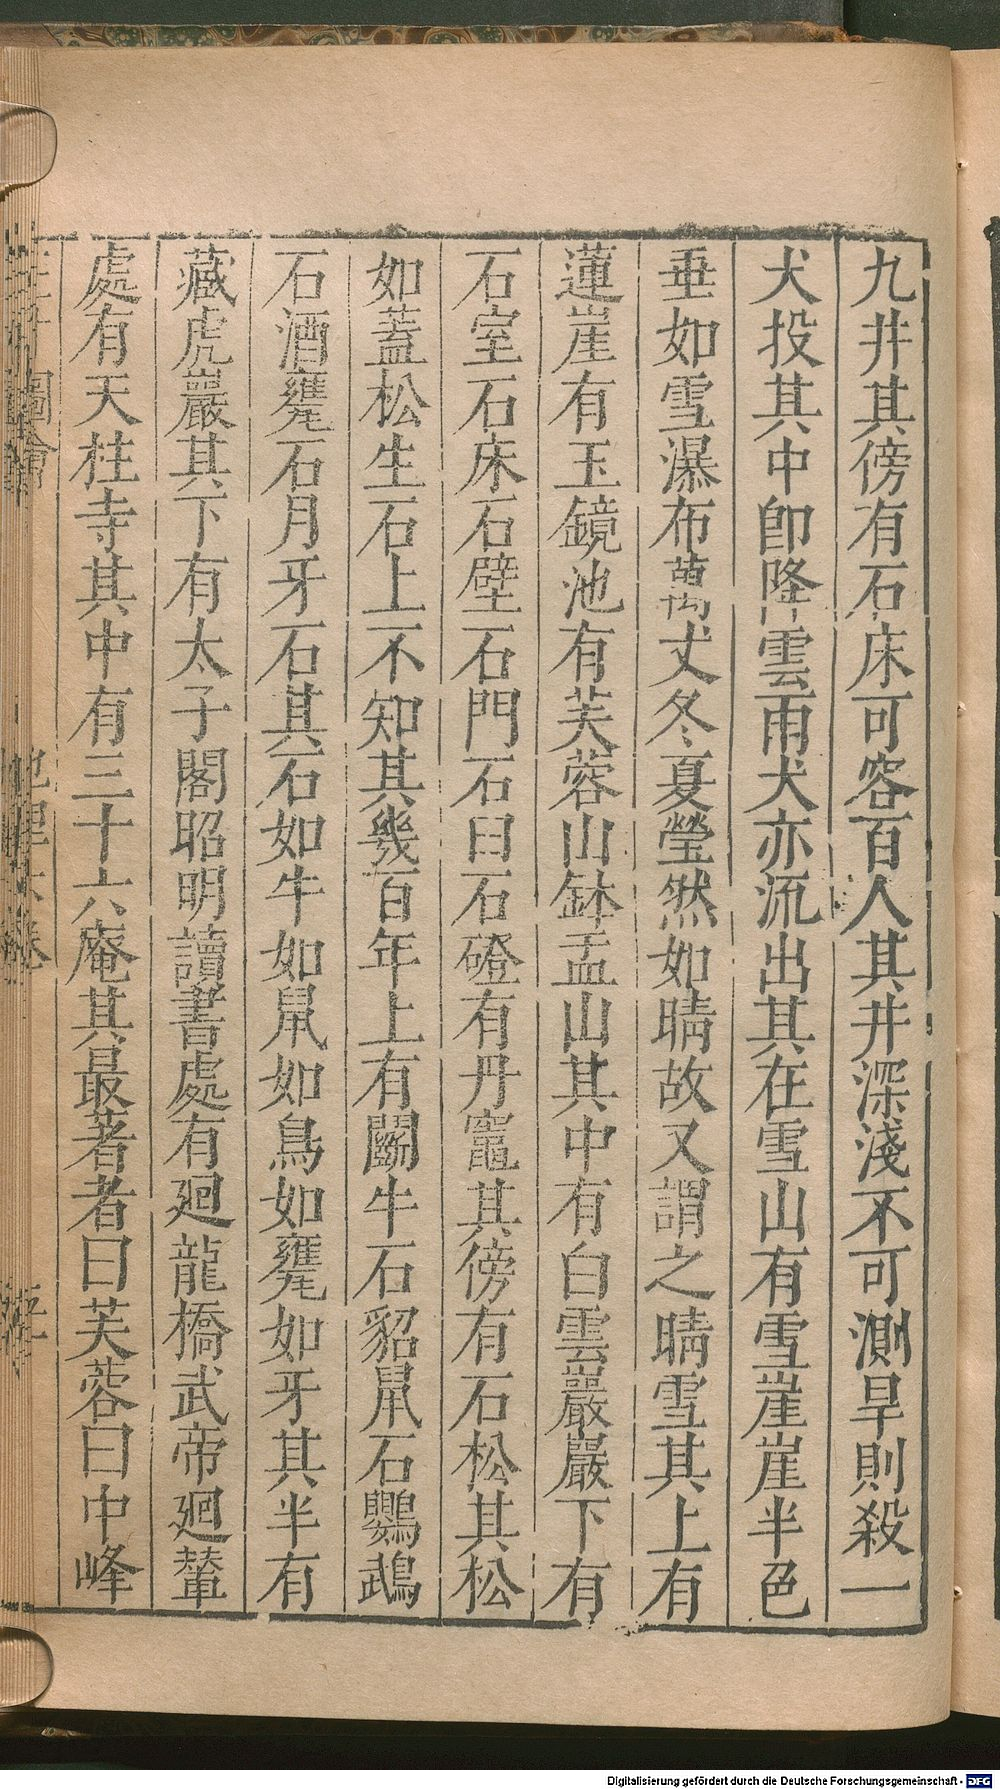 九井其傍有石床可容百人其井深淺不可測旱則殺一
犬投其中卽降雲雨犬亦流出其在雪山有雪崖崖半色
垂如雪瀑布萬丈冬夏瑩然如晴故又謂之晴雪其上有
蓮崖有玉鏡池有芙蓉山鉢盂山其中有白雲巖巖下有
石室石床石壁石門石臼石磴有丹竈其傍有石松其松
如蓋松生石上不知其幾百年上有鬭牛石貂鼠石鸚鵡
石酒甕石月牙石其石如牛如鼠如鳥如甕如牙其半有
藏虎巖其下有太子閣昭明讀書處有廻龍橋武帝廻輦
處有天柱寺其中有三十六庵其最著者曰芙蓉曰中峰
圖會
地理 卷
Digitalisierung gefördert durch die Deutsche Forschungsgemeinschaft - DFG